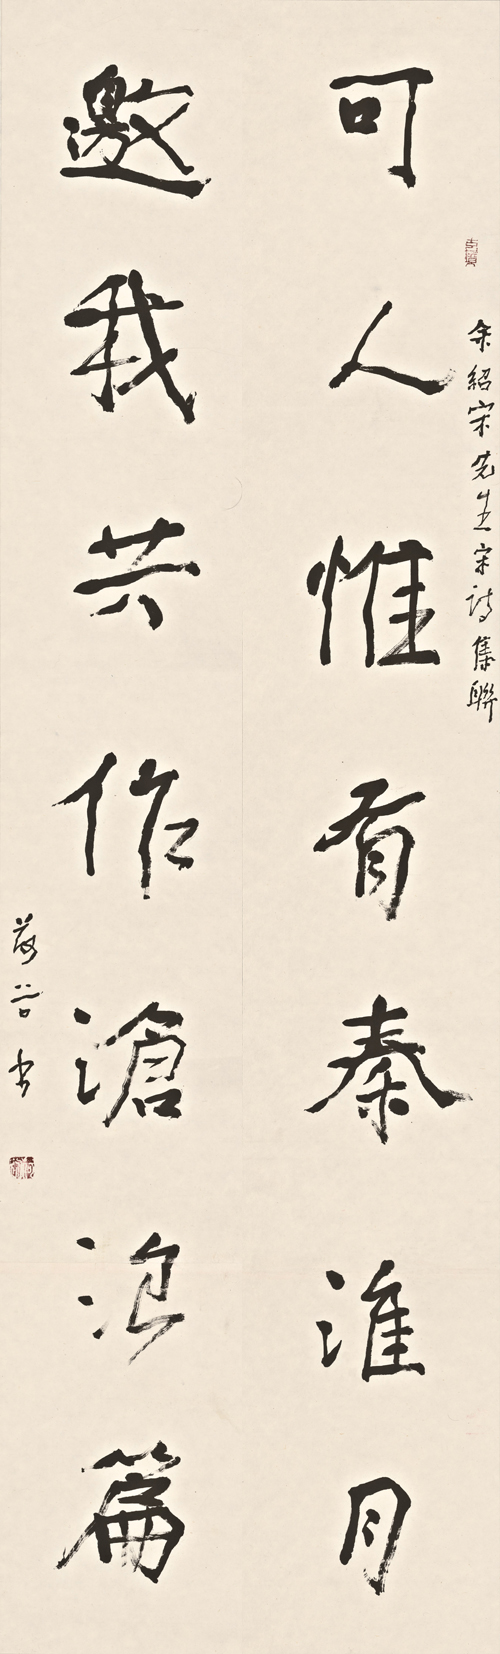 余紹宋先生宋詩集聯
可人惟有秦淮月
邀我共作滄浪篇
谷书